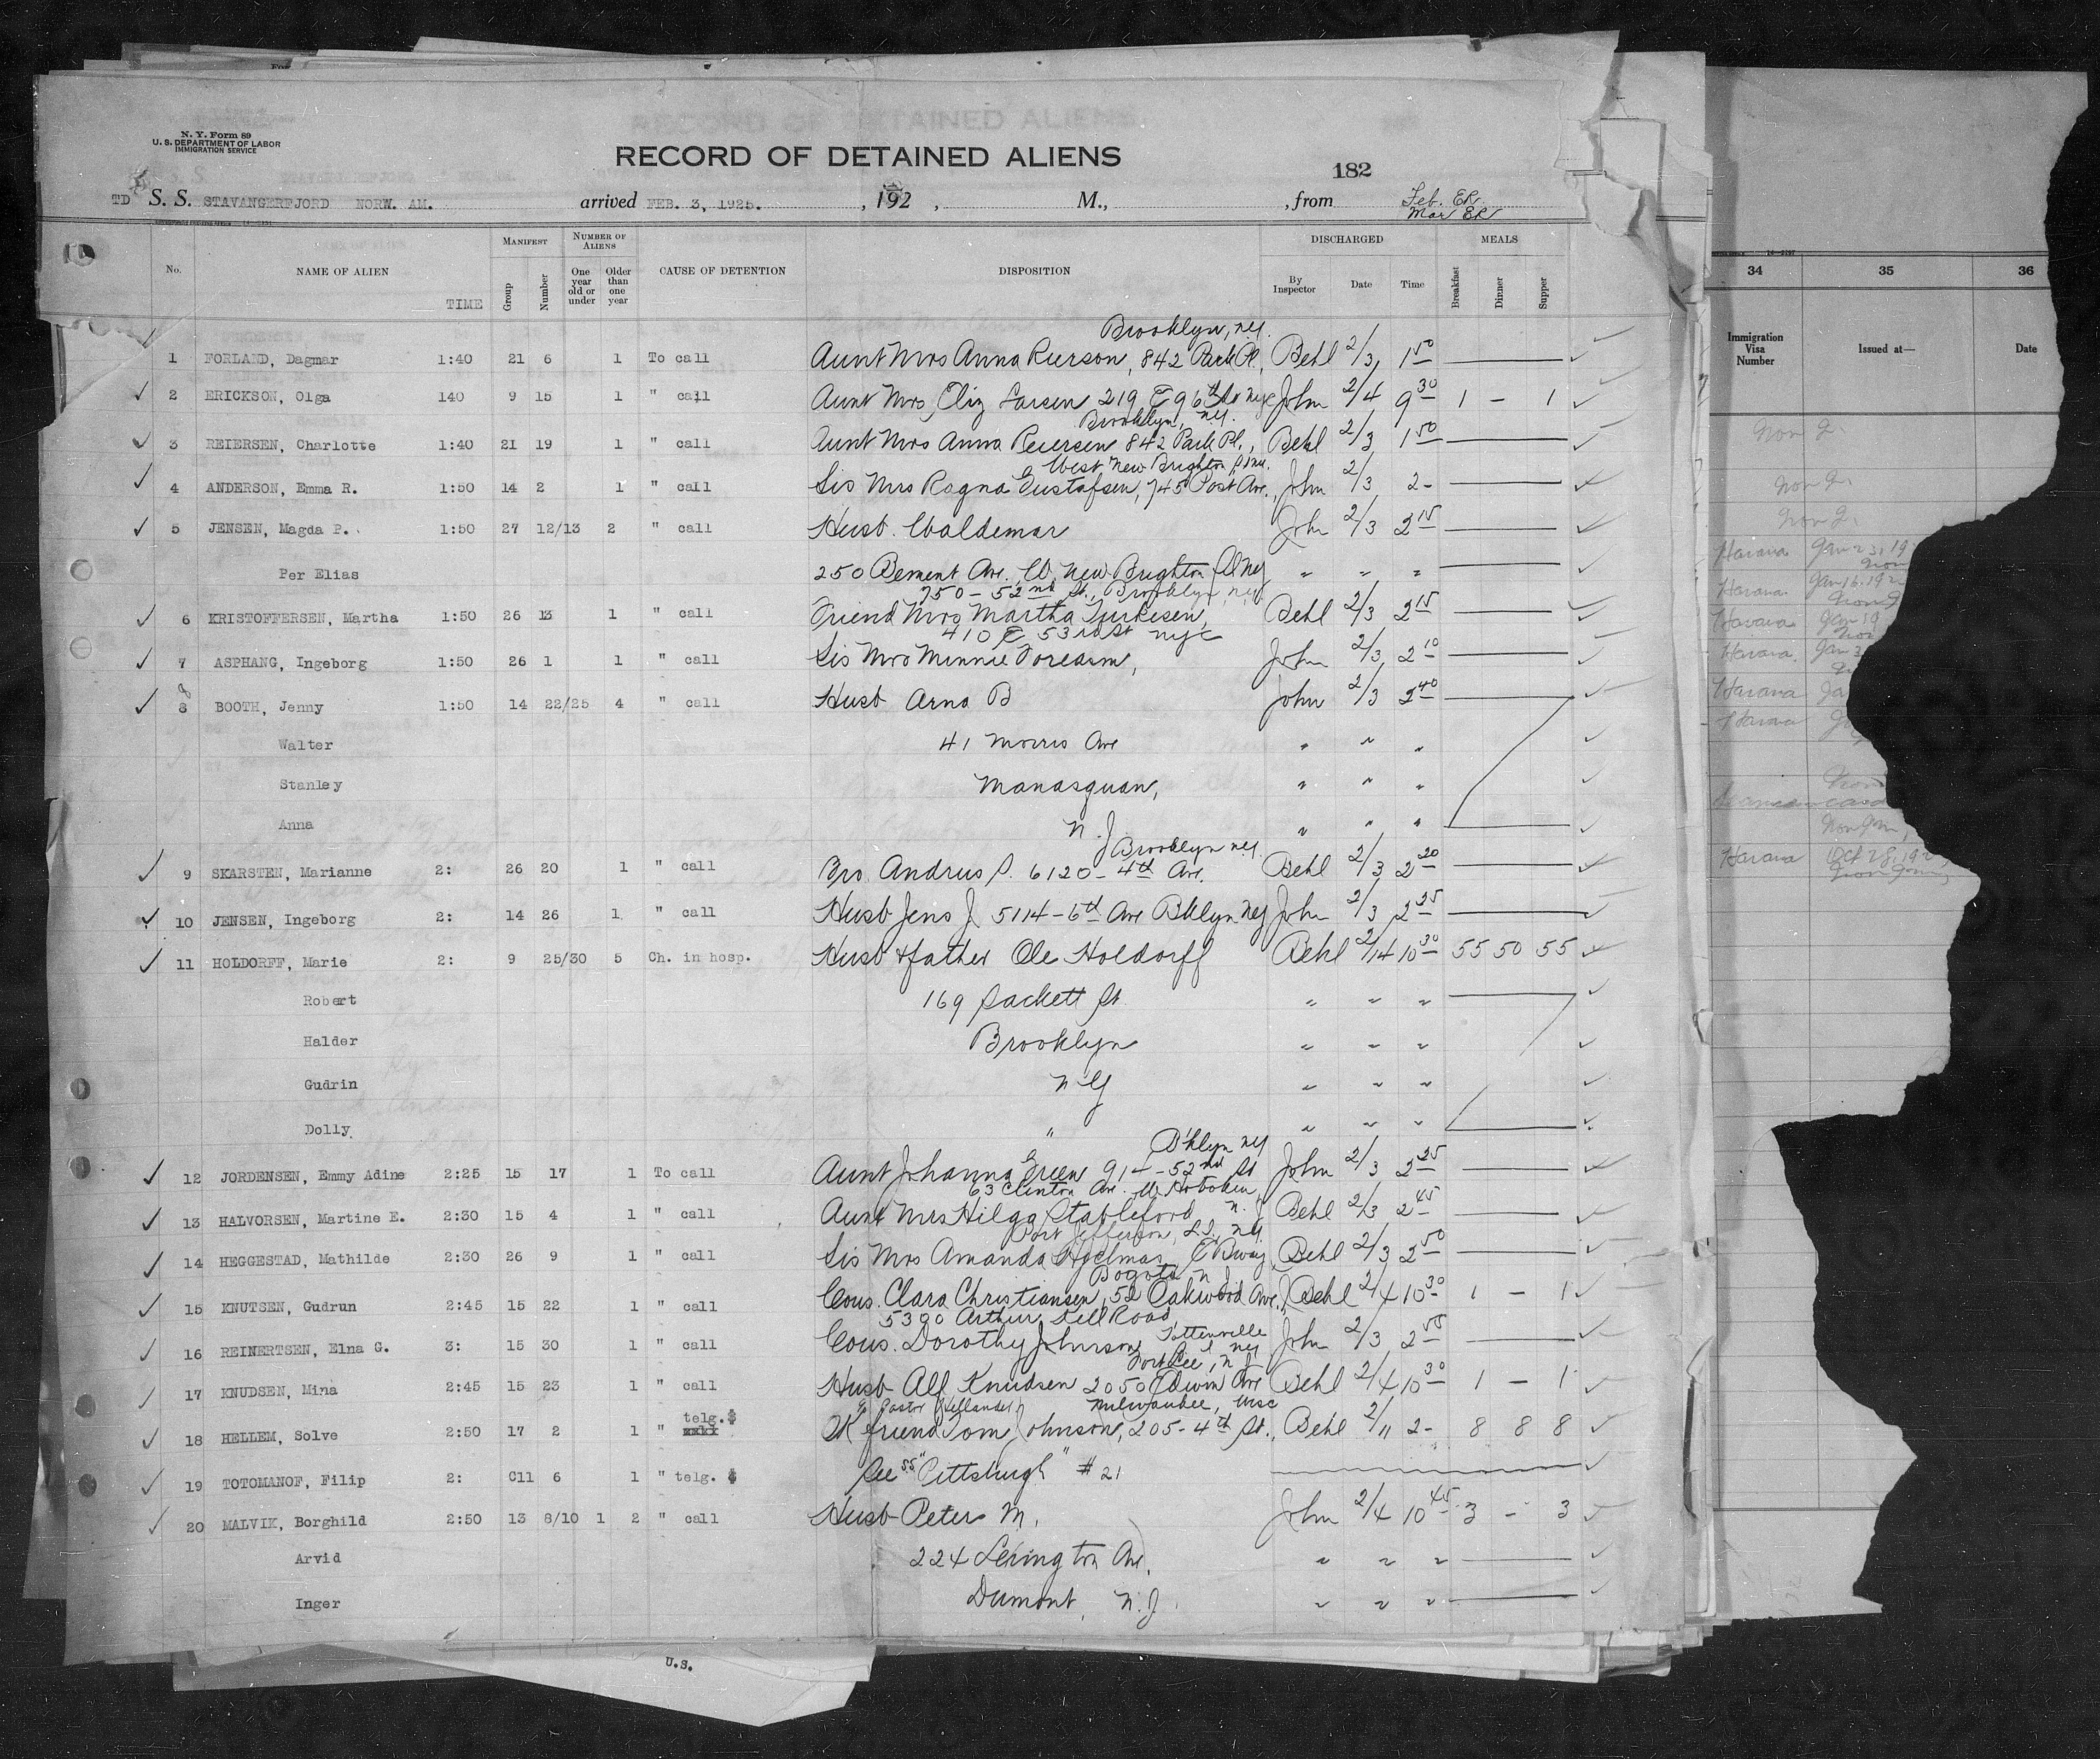 N. Y. Form 89
U. S. DEPARTMENT OF LABOR
IMMIGRATION SERVICE
RECORD OF DETAINED ALIENS
182
TD S. S. STAVANGERFJORD NORW. AM. arrived FEB. 3, 1925. , 192 , M., , from Feb. ER
Mar ER
No. NAME OF ALIEN TIME MANIFEST Group Number NUMBER OF ALIENS One year old or under Older than one year CAUSE OF DETENTION DISPOSITION DISCHARGED By Inspector Date Time MEALS Breakfast Dinner Supper
Brooklyn, ny.
1 FORLAND, Dagmar 1:40 21 6 1 To call Aunt Mrs Anna Rierson, 842 Park Pl, Behl 2/3 1 50
2 ERICKSON, Olga 140 9 15 1 " call Aunt Mrs Eliz Larsen 219 E 96th St nyc John 2/4 9 30 1 – 1
Brooklyn, ny.
3 REIERSEN, Charlotte 1:40 21 19 1 " call Aunt Mrs Anna Reiersen 842 Park Pl., Behl 2/3 1 50
West New Brighton SI ny.
4 ANDERSON, Emma R. 1:50 14 2 1 " call Sis Mrs Ragna Gustafsen, 745 Post Ave., John 2/3 2-
5 JENSEN, Magda P. 1:50 27 12/13 2 " call Husb. Waldemar John 2/3 2 15
Per Elias 250 Bement Ave. W. New Brighton SI NY " " "
750 - 52nd St., Brooklyn, ny.
6 KRISTOFFERSEN, Martha 1:50 26 13 1 " call Friend Mrs Martha Behl 2/3 2 15
410 E 53rd St nyc
7 ASPHANG, Ingeborg 1:50 26 1 1 " call Sis Mrs Minnie John 2/3 2 10
8 BOOTH, Jenny 1:50 14 22/25 4 " call Husb Arno B John 2/3 2 40
Walter 41 Morris Ave " " "
Stanley Manasquan, " " "
Anna N.J " " "
Brooklyn ny.
9 SKARSTEN, Marianne 2: 26 20 1 " call Bro. Andrus S. 6120 - 4th Ave. Behl 2/3 2 20
10 JENSEN, Ingeborg 2: 14 26 1 " call Husb Jens J 5114 - 6th Ave Bklyn NY John 2/3 2 25
11 HOLDORFF, Marie 2: 9 25/30 5 Ch. in hosp. Husb & father Ole Holdorff Behl 2/14 10 30 55 50 55
Robert 169 Sackett St " " "
Halder Brooklyn " " "
Gudrin NY " " "
Dolly " " " "
B'klyn NY
12 JORDENSEN, Emmy Adine 2:25 15 17 1 To call Aunt Johanna Green 914 - 52nd St John 2/3 2 25
63 Clinton Ave. W. Hoboken,
13 HALVORSEN, Martine E. 2:30 15 4 1 " call Aunt Mrs Hilga Stableford N.J Behl 2/3 2 45
Port Jefferson, L.I., ny.
14 HEGGESTAD, Mathilde 2:30 26 9 1 " call Sis Mrs Amanda E Bway, Behl 2/3 2 50
Bogota N J
15 KNUTSEN, Gudrun 2:45 15 22 1 " call Cous. Clara Christiansen, 52 Oakwood Ave., Behl 2/4 10 30 1 – 1
5300 Arthur Kill Road
16 REINERTSEN, Elna G. 3: 15 30 1 " call Cous. Dorothy Johnson Tottenville S I NY John 2/3 2 55
Fort Lee, N J
17 KNUDSEN, Mina 2:45 15 23 1 " call Husb Alf Knudsen 2050 Edwin Ave Behl 2/4 10 30 1 – 1
Pastor Milwaukee, Wisc
18 HELLEM, Solve 2:50 17 2 1 " telg. friend Tom Johnson, 205 - 4th St., Behl 2/11 2- 8 8 8
19 TOTOMANOF, Filip 2: C11 6 1 " telg. $ See SS "Pittsburgh" # 21
20 MALVIK, Borghild 2:50 13 8/10 1 2 " call Husb Peter M. John 2/4 10 45 3 – 3
Arvid 224 Lexington Ave. " " "
Inger Dumont, N.J. " " "
U.S.
34 35 36
Immigration Visa Number Issued at— Date
Havana
Havana Jan 16. 192
Havana
Havana
Havana
Havana Oct 28, 192